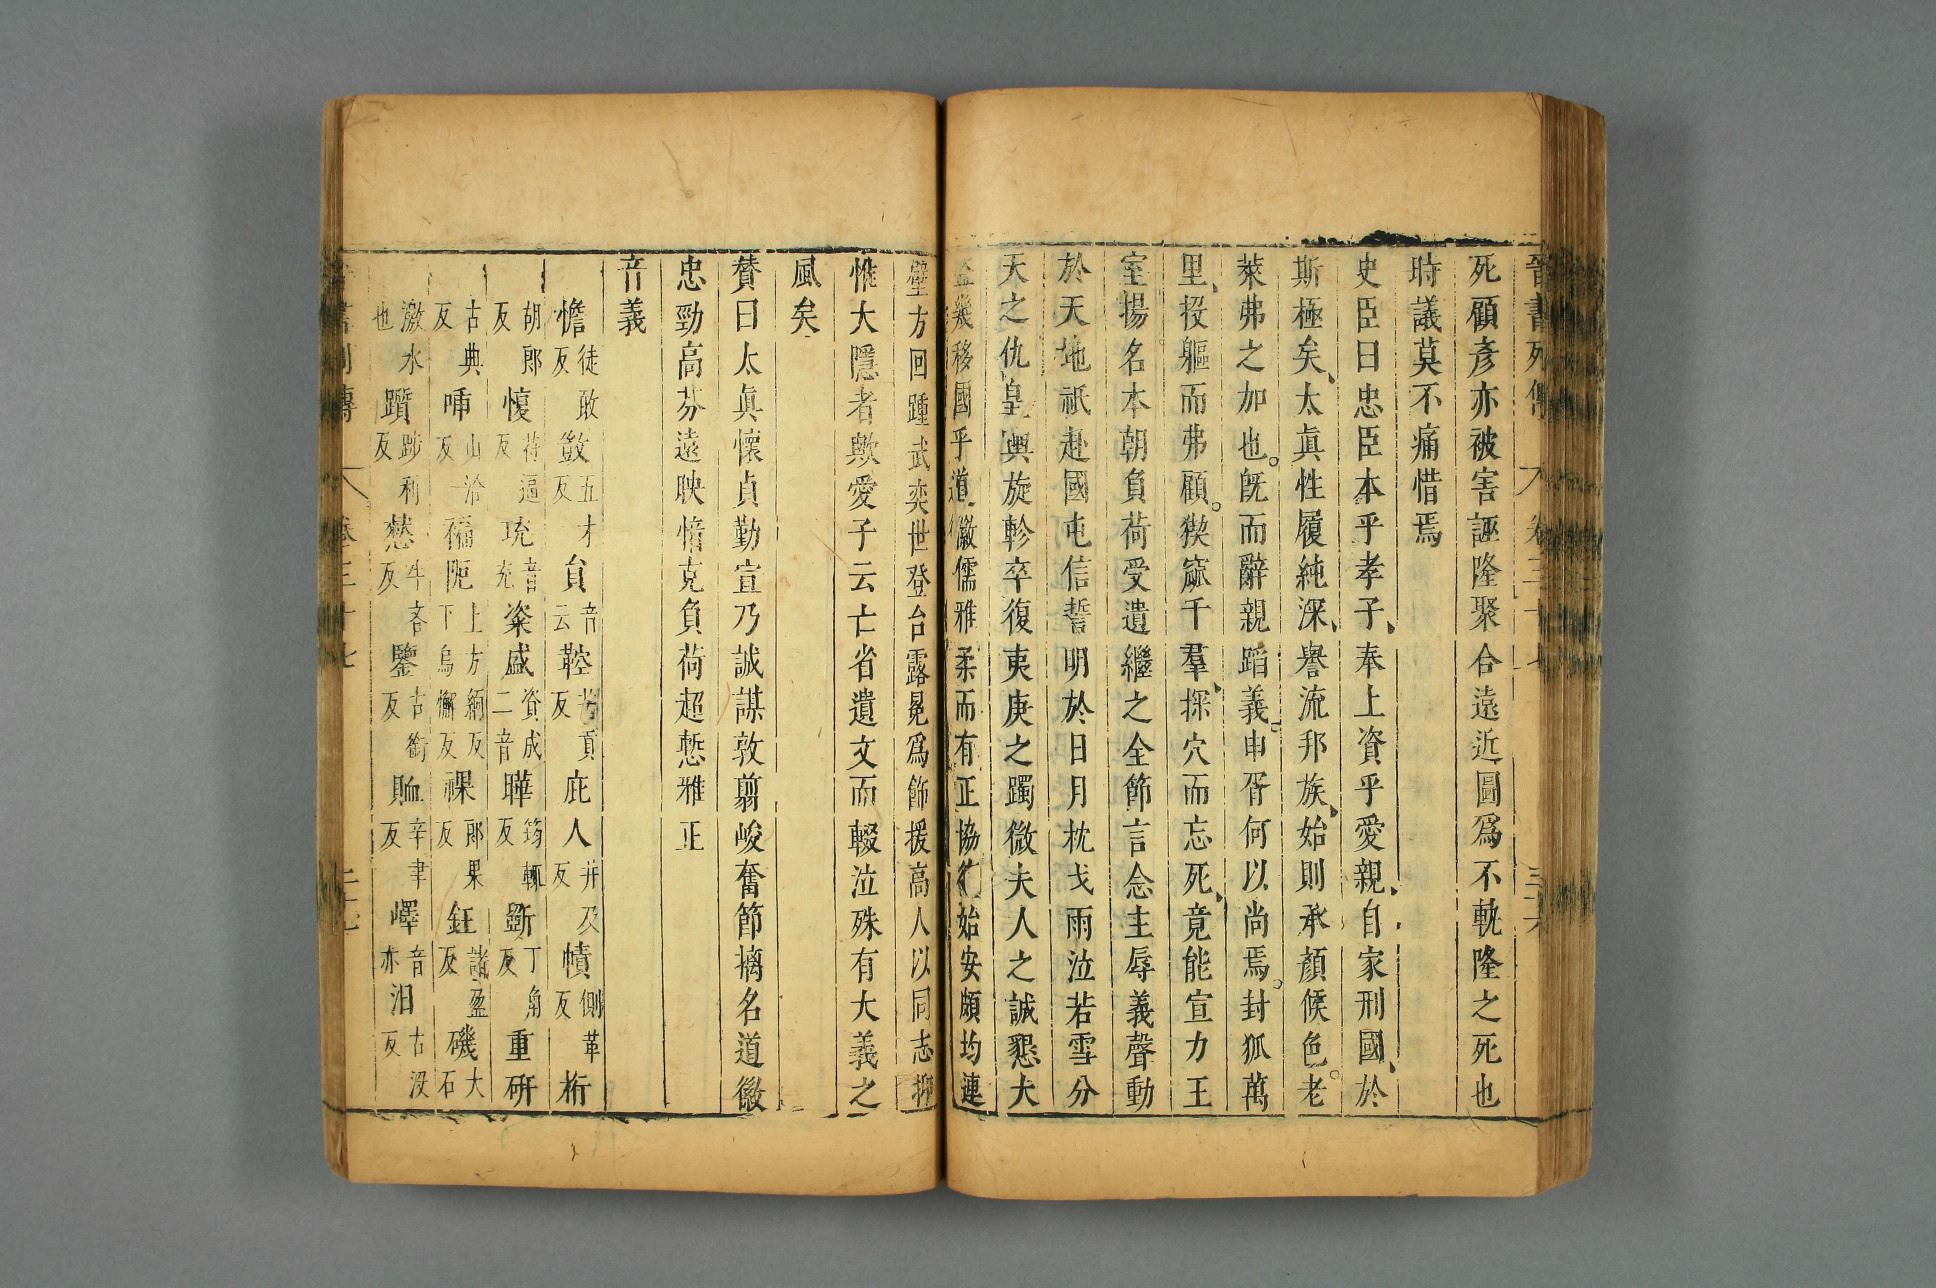 死顧彥亦被害誣隆聚合遠近圖爲不軌隆之死也
時議莫不痛惜焉
史臣曰忠臣本乎孝子奉上資乎愛親自家刑國於
斯極矣太眞性履純深譽流邦族始則承顏候色老
萊弗之加也旣而辭親蹈義申胥何以尚焉封狐萬
里投軀而弗顧猰窳千羣探穴而忘死竟能宣力王
室揚名本朝負荷受遺繼之全節言念主辱義聲動
於天地祇赴國屯信誓明於日月枕戈雨泣若雪分
天之仇皇輿旋軫卒復夷庚之躅微夫人之誠懇大
盜幾移國乎道徽儒雅柔而有正協德始安頗均連
璧方回踵武奕世登台露冕爲飾援高人以同志抑
惟大隱者歟愛子云亡省遺文而輟泣殊有大義之
風矣
賛曰太眞懷貞勤宣乃誠謀敦翦峻奮節摛名道徽
忠勁高芬遠映愔克負荷超慙雅正
音義
憺徒敢反 敳五才反 貟音云 鞚苦貢反 庇人并及反 幘側革反 桁
胡郎反 愎符逼反 珫音充 粢盛資成二音 曄筠輒反 斲丁角反 重硏
古典反 啑山洽反 褊阨上方緬反下烏懈反 祼郎果反 鉦諸盈反 磯大石
激水也 躓陟利反 憖牛吝反 鑒古銜反 賉辛聿反 嶧音亦 汨古沒反